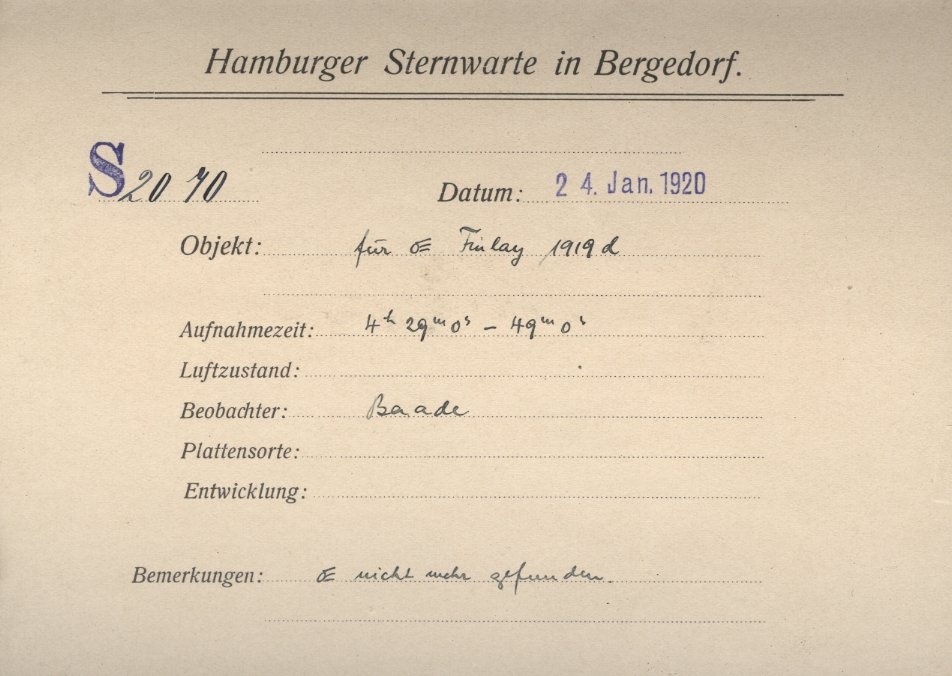 Hamburger Sternwarte in Bergedorf.
S 2070 Datum: 24. Jan. 1920
Objekt: für ☄ Finlay 1919 d
Aufnahmezeit: 4ʰ 29ᵐ 0ˢ – 49ᵐ 0ˢ
Luftzustand:
Beobachter: Baade
Plattensorte:
Entwicklung:
Bemerkungen: ☄ nicht mehr gefunden.